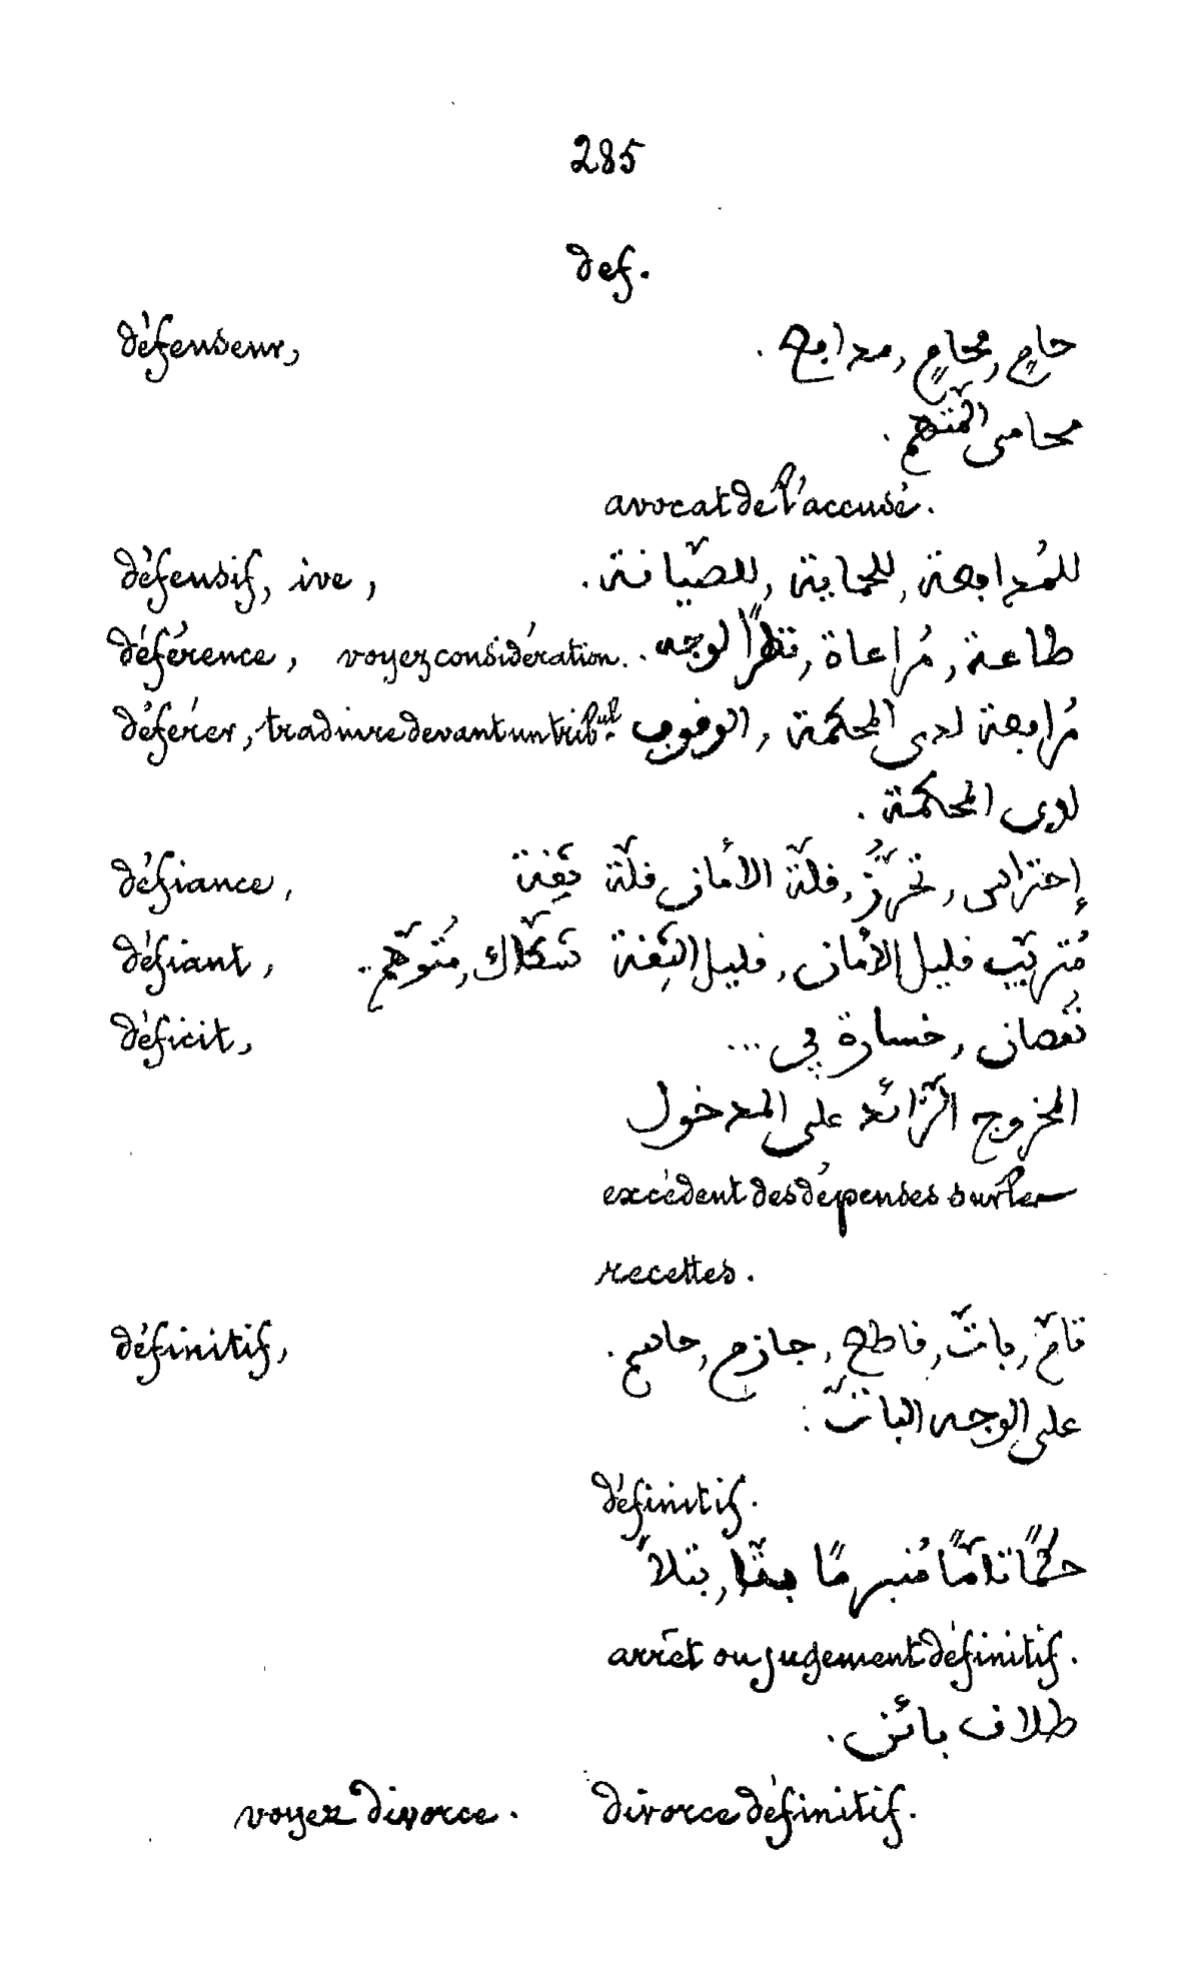 285
def.
défenseur, حامٍ, محامٍ, مدافع.
محامى المتّهم.
avocat de l'accusé.
défensif, ive, للمُدافعة, للحماية, للصّيانة.
déférence, voyez considération. طاعة, مُراعاة, نظرًا لوجه.
déférer, traduire devant un tribul. مُرافعة لدى المحكمة, الوقوف
لدى المحكمة.
défiance, إحتراس, تحرّزُ, قلّة الأمان, قلّة ثِقة
défiant, مُتريّب قليل الأمان, قليل الثِقة شكّاك, مُتوهّم.
déficit, نُقصان, خسارة في ...
المخروج الزّائد على المدخول
excédent des dépenses sur les
recettes.
définitif, تامّ, باتّ, قاطع, جازم, حاسم.
على الوجه الباتّ.
définitif.
حكمًا تامّا مُنبرمًا بتّا, بتلاً
arrêt ou jugement définitif.
طلاق بائن.
voyez divorce. divorce définitif.